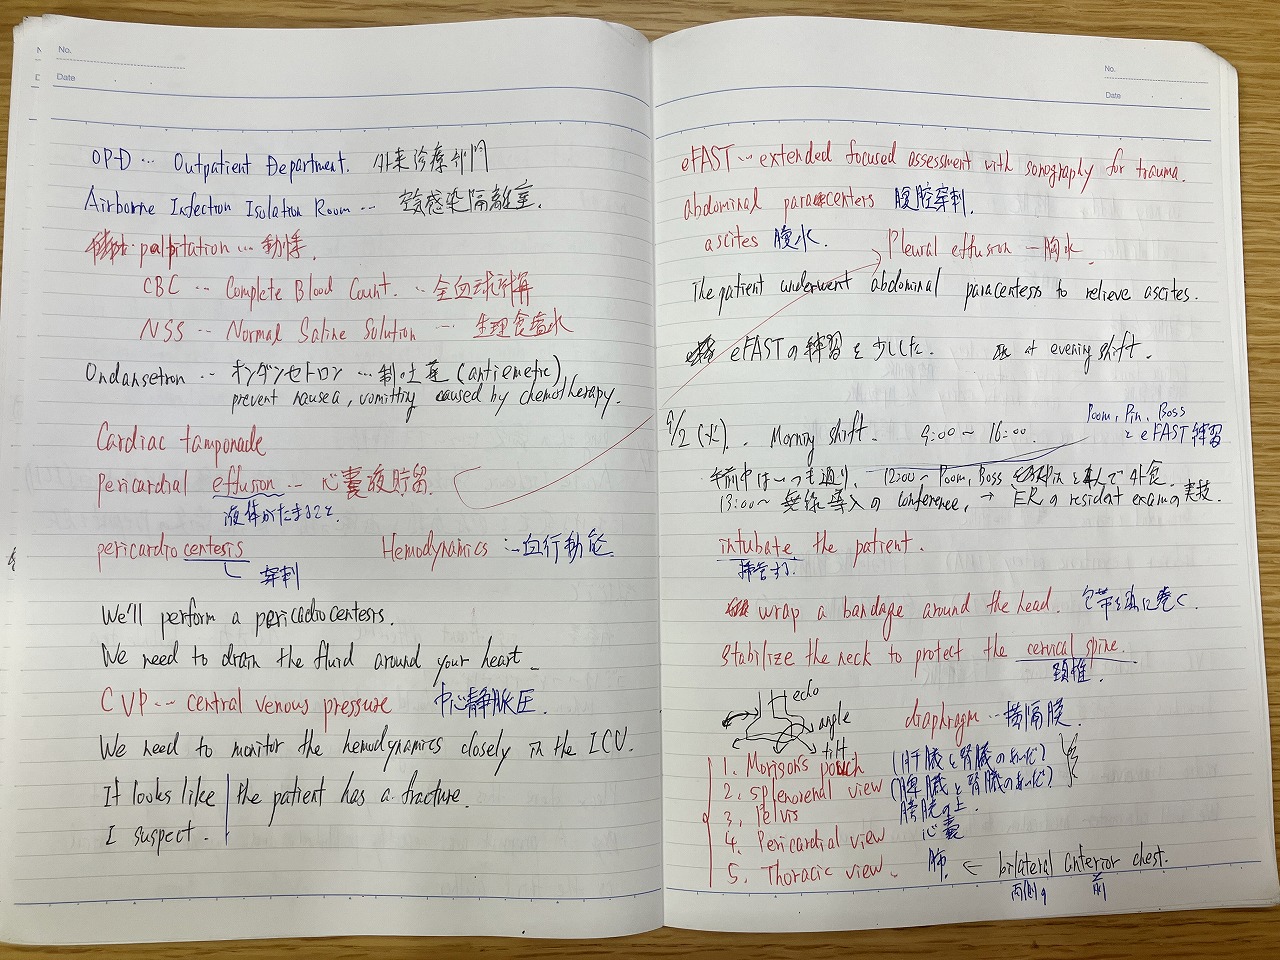 No.
Date
OPD … Outpatient Department. 外来診療部門
Airborne Infection Isolation Room … 空気感染隔離室.
palpitation … 動悸.
CBC … Complete Blood Count. … 全血球計算
NSS … Normal Saline Solution … 生理食塩水
Ondansetron … オンダンセトロン … 制吐薬 (antiemetic)
prevent nausea, vomitting caused by chemotherapy.
Cardiac tamponade
pericardial effusion … 心嚢液貯留.
液体がたまること
pericardiocentesis Hemodynamics … 血行動態
穿刺
We'll perform a pericadiocentesis.
We need to drain the fluid around your heart.
CVP … central venous pressure 中心静脈圧.
We need to monitor the hemodynamics closely in the ICU.
It looks like the patient has a fracture.
I suspect.
No.
Date
eFAST … extended focused assessment with sonography for trauma.
abdominal paracenters 腹腔穿刺.
ascites 腹水. Pleural effusion — 胸水.
The patient underwent abdominal paracentesis to relieve ascites.
eFASTの練習を少しした. at evening shift.
9/2 (火). Morning shift. 9:00 ~ 16:00. Poom, Pin, Boss
と eFAST 練習
午前中はいつも通り. 12:00~ Poom, Boss Pinと4人で外食.
13:00~ 無線導入の conference, → ERの resident examの実技.
intubate the patient.
挿管する.
wrap a bandage around the head. 包帯を頭に巻く.
stabilize the neck to protect the cervical spine.
頚椎.
echo
angle
tilt
diaphragm … 横隔膜.
1. Morison's pouch (肝臓と腎臓のあいだ)
2. splenorenal view (脾臓と腎臓のあいだ)
3. Pelvis 膀胱の上.
4. Pericardial view 心嚢
5. Thoracic view. 肺. ← bilateral anterior chest.
両側の 前